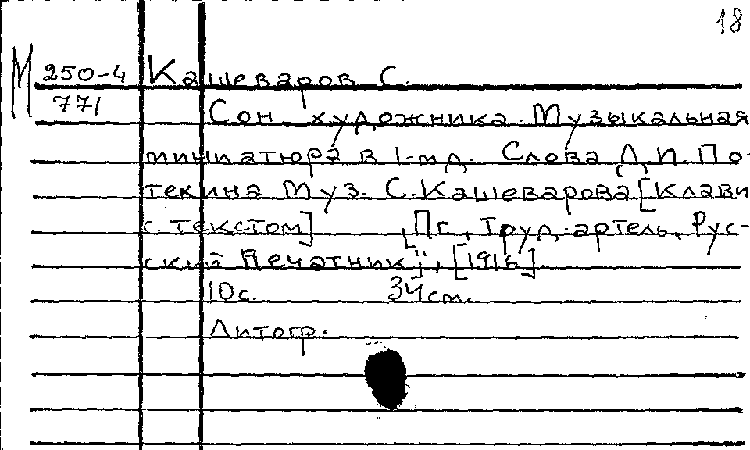 18
М 250-4 Кашеваров С.
771 Сон художника. Музыкальная
миниатюра в 1-м д. Слова Л.И. По-
текина Муз. С. Кашеварова [Клави
с текстом] [Пг., Труд. артель, Рус-
ский Печатник], [1916]
10с. 34см.
Литогр.